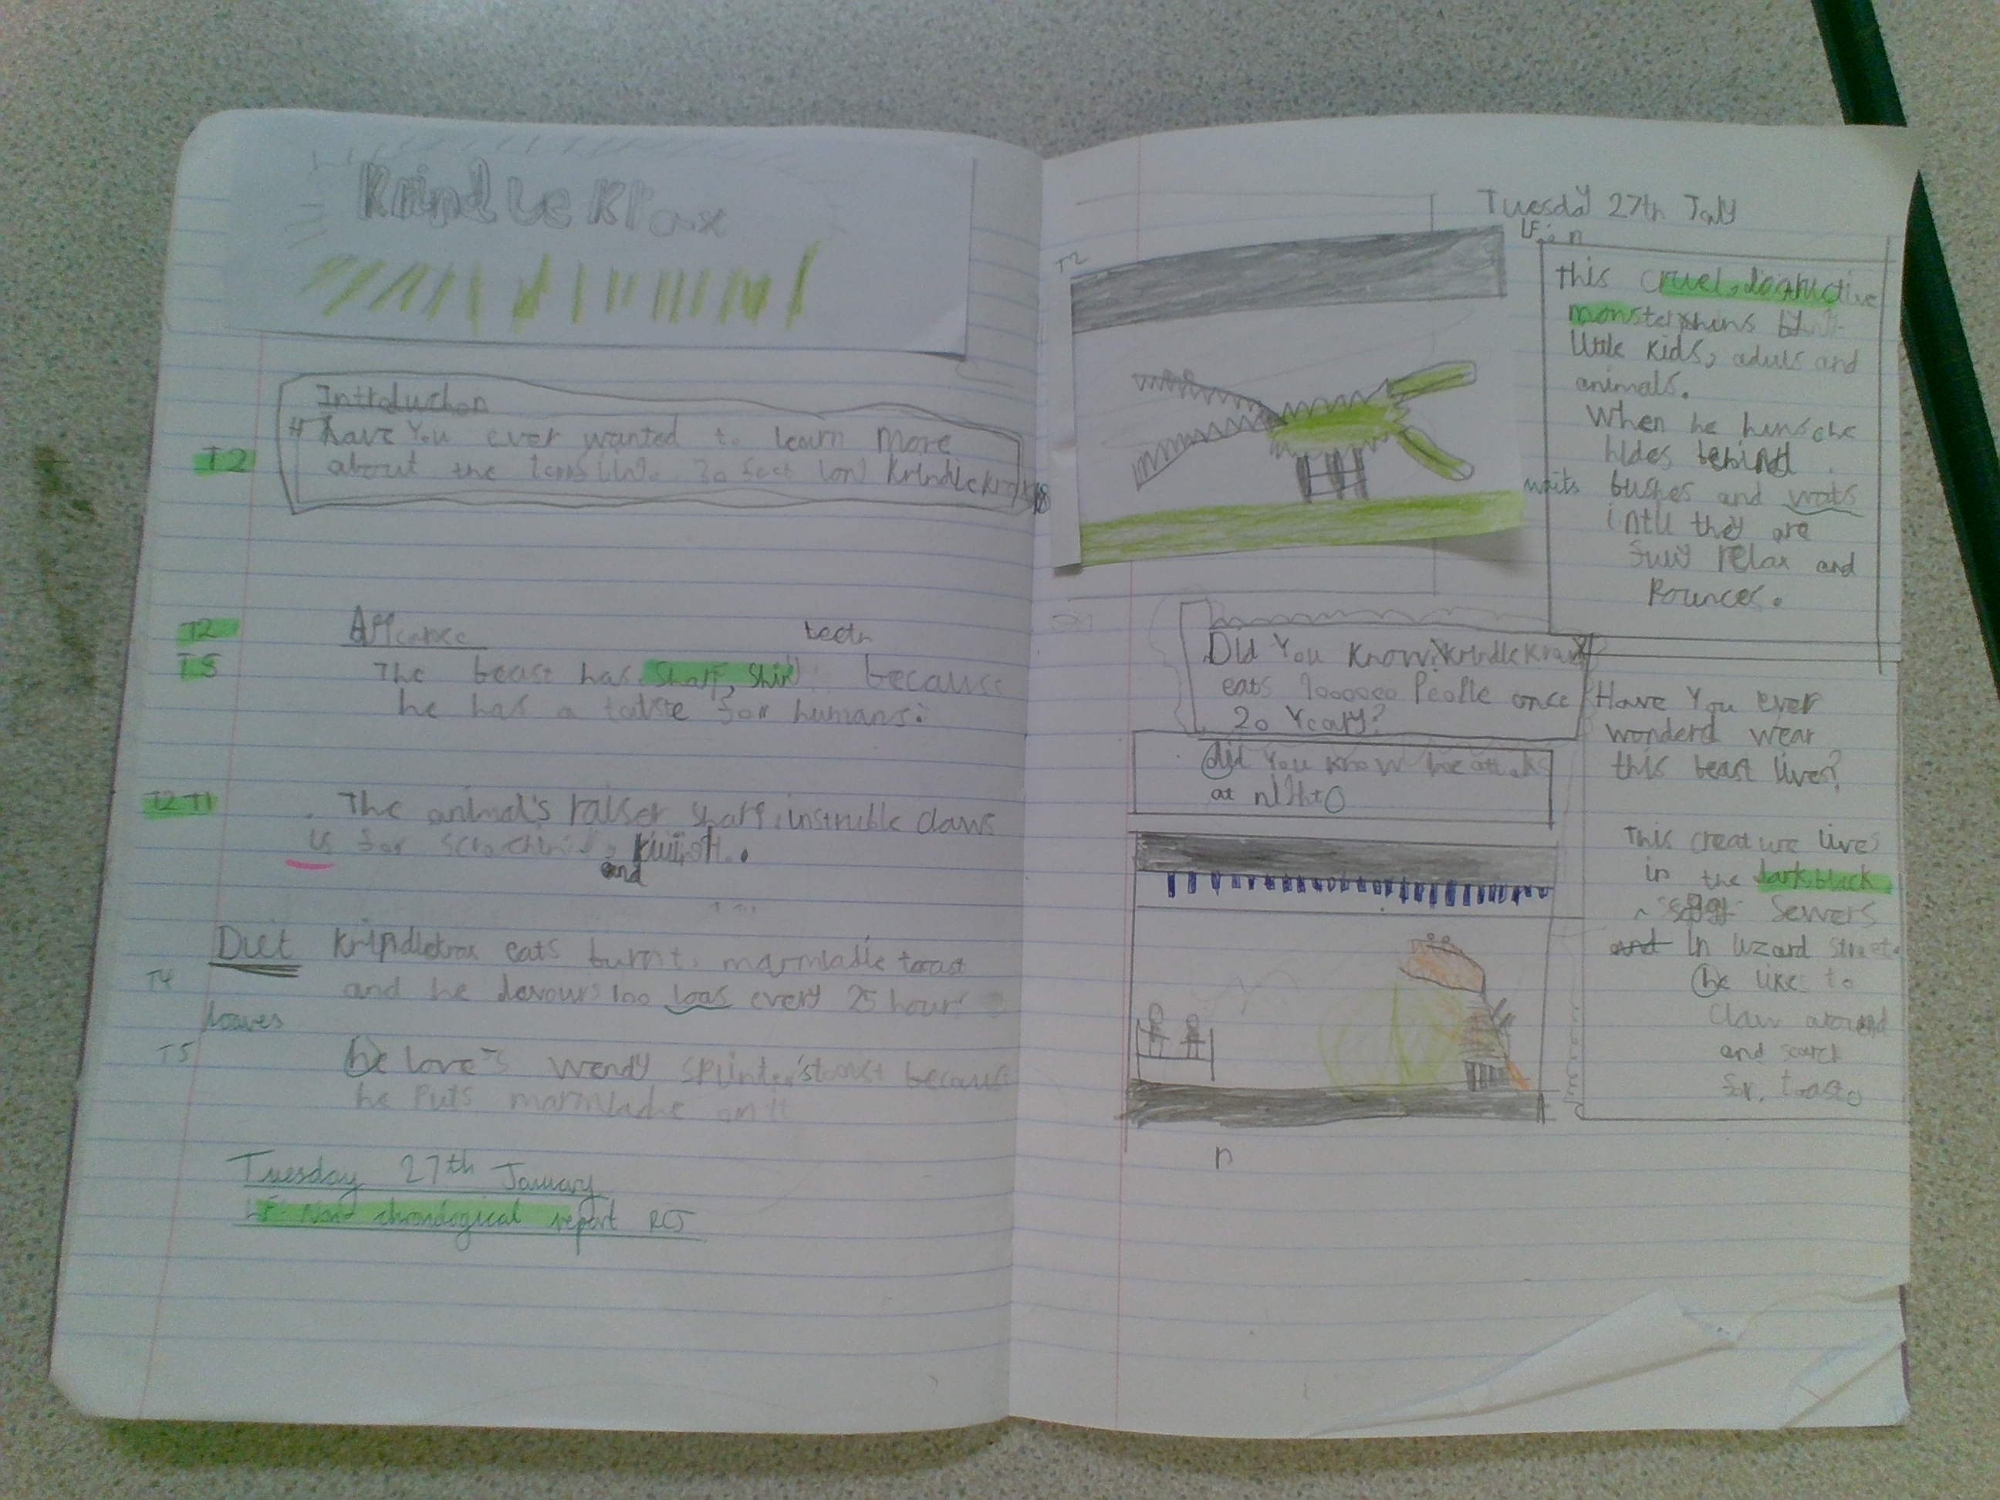 Krindle Krax
Introduction
Have You ever wanted to learn more
about the 30 feet long Krindlekrax
T2
Apperance
teeth
T2
T5
The beast has sharp, shiny because
he has a tatste for humans.
T2 T1
The animal's raiser sharp, instruble claws
is for scraching,
and
Diet
Krindlekrax eats burnt, marmladie toast
and he devours 100 loas every 25 hours
T4
loaves
T5
he love's wendy splinter's toast because
he puts marmladie on it
Tuesday 27th January
LF: Non chronological report RCJ
Tuesday 27th July
T2
This cruel, distructive
monster
little kids, adults and
animals.
When he he
hides behind
bushes and waits
waits
intil they are
fully relax and
Pounces.
Did You Know Krindlekrax
eats 9000000 People once
20 Years?
did You know he attaks
at night
Have You ever
wonderd wear
this beast lives?
This creature lives
in the dark, black
sewers
and in lizard street.
he likes to
claw around
and search
for toast
n